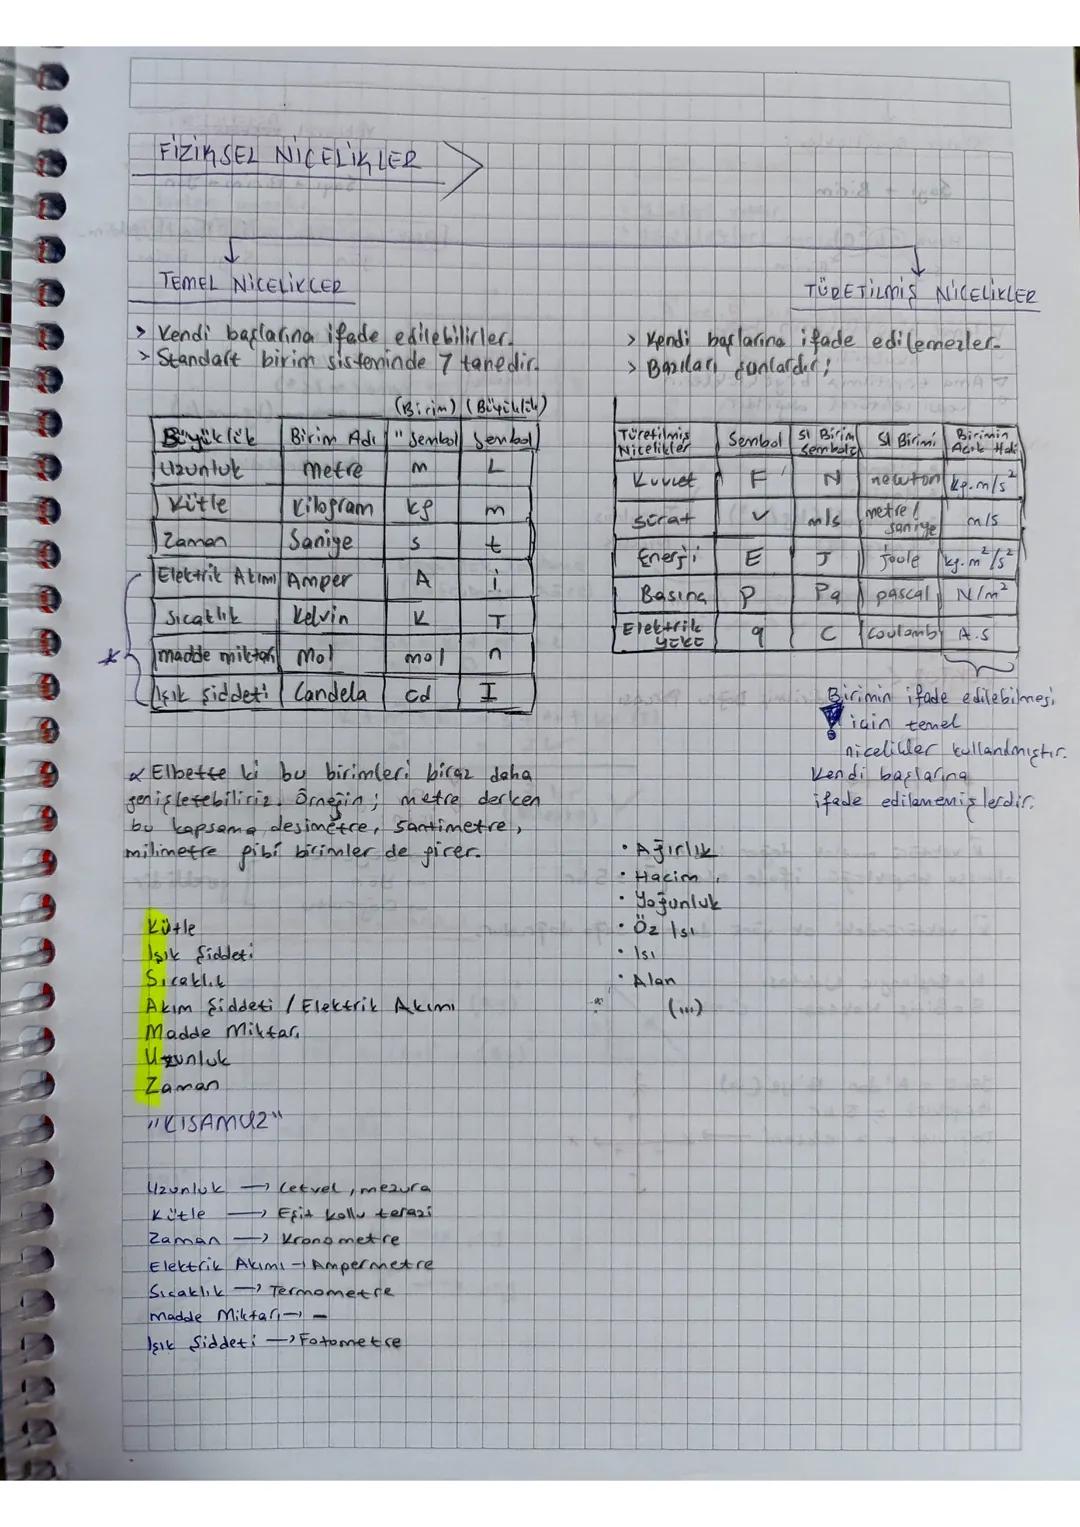 FİZİKSEL NİCELİKLER
TEMEL NİCELİKLER
> Kendi başlarına ifade edilebilirler.
> Standart birim sisteminde 7 tanedir.
(Birim) (Büyüklük)
Büyüklük Birim Adı "Sembol Sembol
Uzunluk metre m L
Kütle Kilogram kg m
Zaman Saniye s t
Elektrik Akımı Amper A i
Sıcaklık Kelvin K T
madde miktarı Mol mol n
Işık şiddeti Candela cd I
* Elbette ki bu birimleri biraz daha
genişletebiliriz. Örneğin; metre derken
bu kapsama desimetre, santimetre,
milimetre gibi birimler de girer.
Kütle
Işık Şiddeti
Sıcaklık
Akım Şiddeti / Elektrik Akımı
Madde Miktarı
Uzunluk
Zaman
"KISAMUZ"
Uzunluk → Cetvel, mezura
Kütle → Eşit kollu terazi
Zaman → Kronometre
Elektrik Akımı → Ampermetre
Sıcaklık → Termometre
Madde Miktarı → –
Işık Şiddeti → Fotometre
TÜRETİLMİŞ NİCELİKLER
> Kendi başlarına ifade edilemezler.
> Bazıları şunlardır;
Türetilmiş Nicelikler Sembol SI Birim Sembolü SI Birimi Birimin Açık Hali
Kuvvet F N newton kg.m/s²
Sürat v m/s metre/saniye m/s
Enerji E J joule kg.m²/s²
Basınç P Pa pascal N/m²
Elektrik YÜKÜ q C Coulomb A.s
Birimin ifade edilebilmesi
için temel
nicelikler kullanılmıştır.
Kendi başlarına
ifade edilememişlerdir.
• Ağırlık
• Hacim
• Yoğunluk
• Öz Isı
• Isı
• Alan
(...)